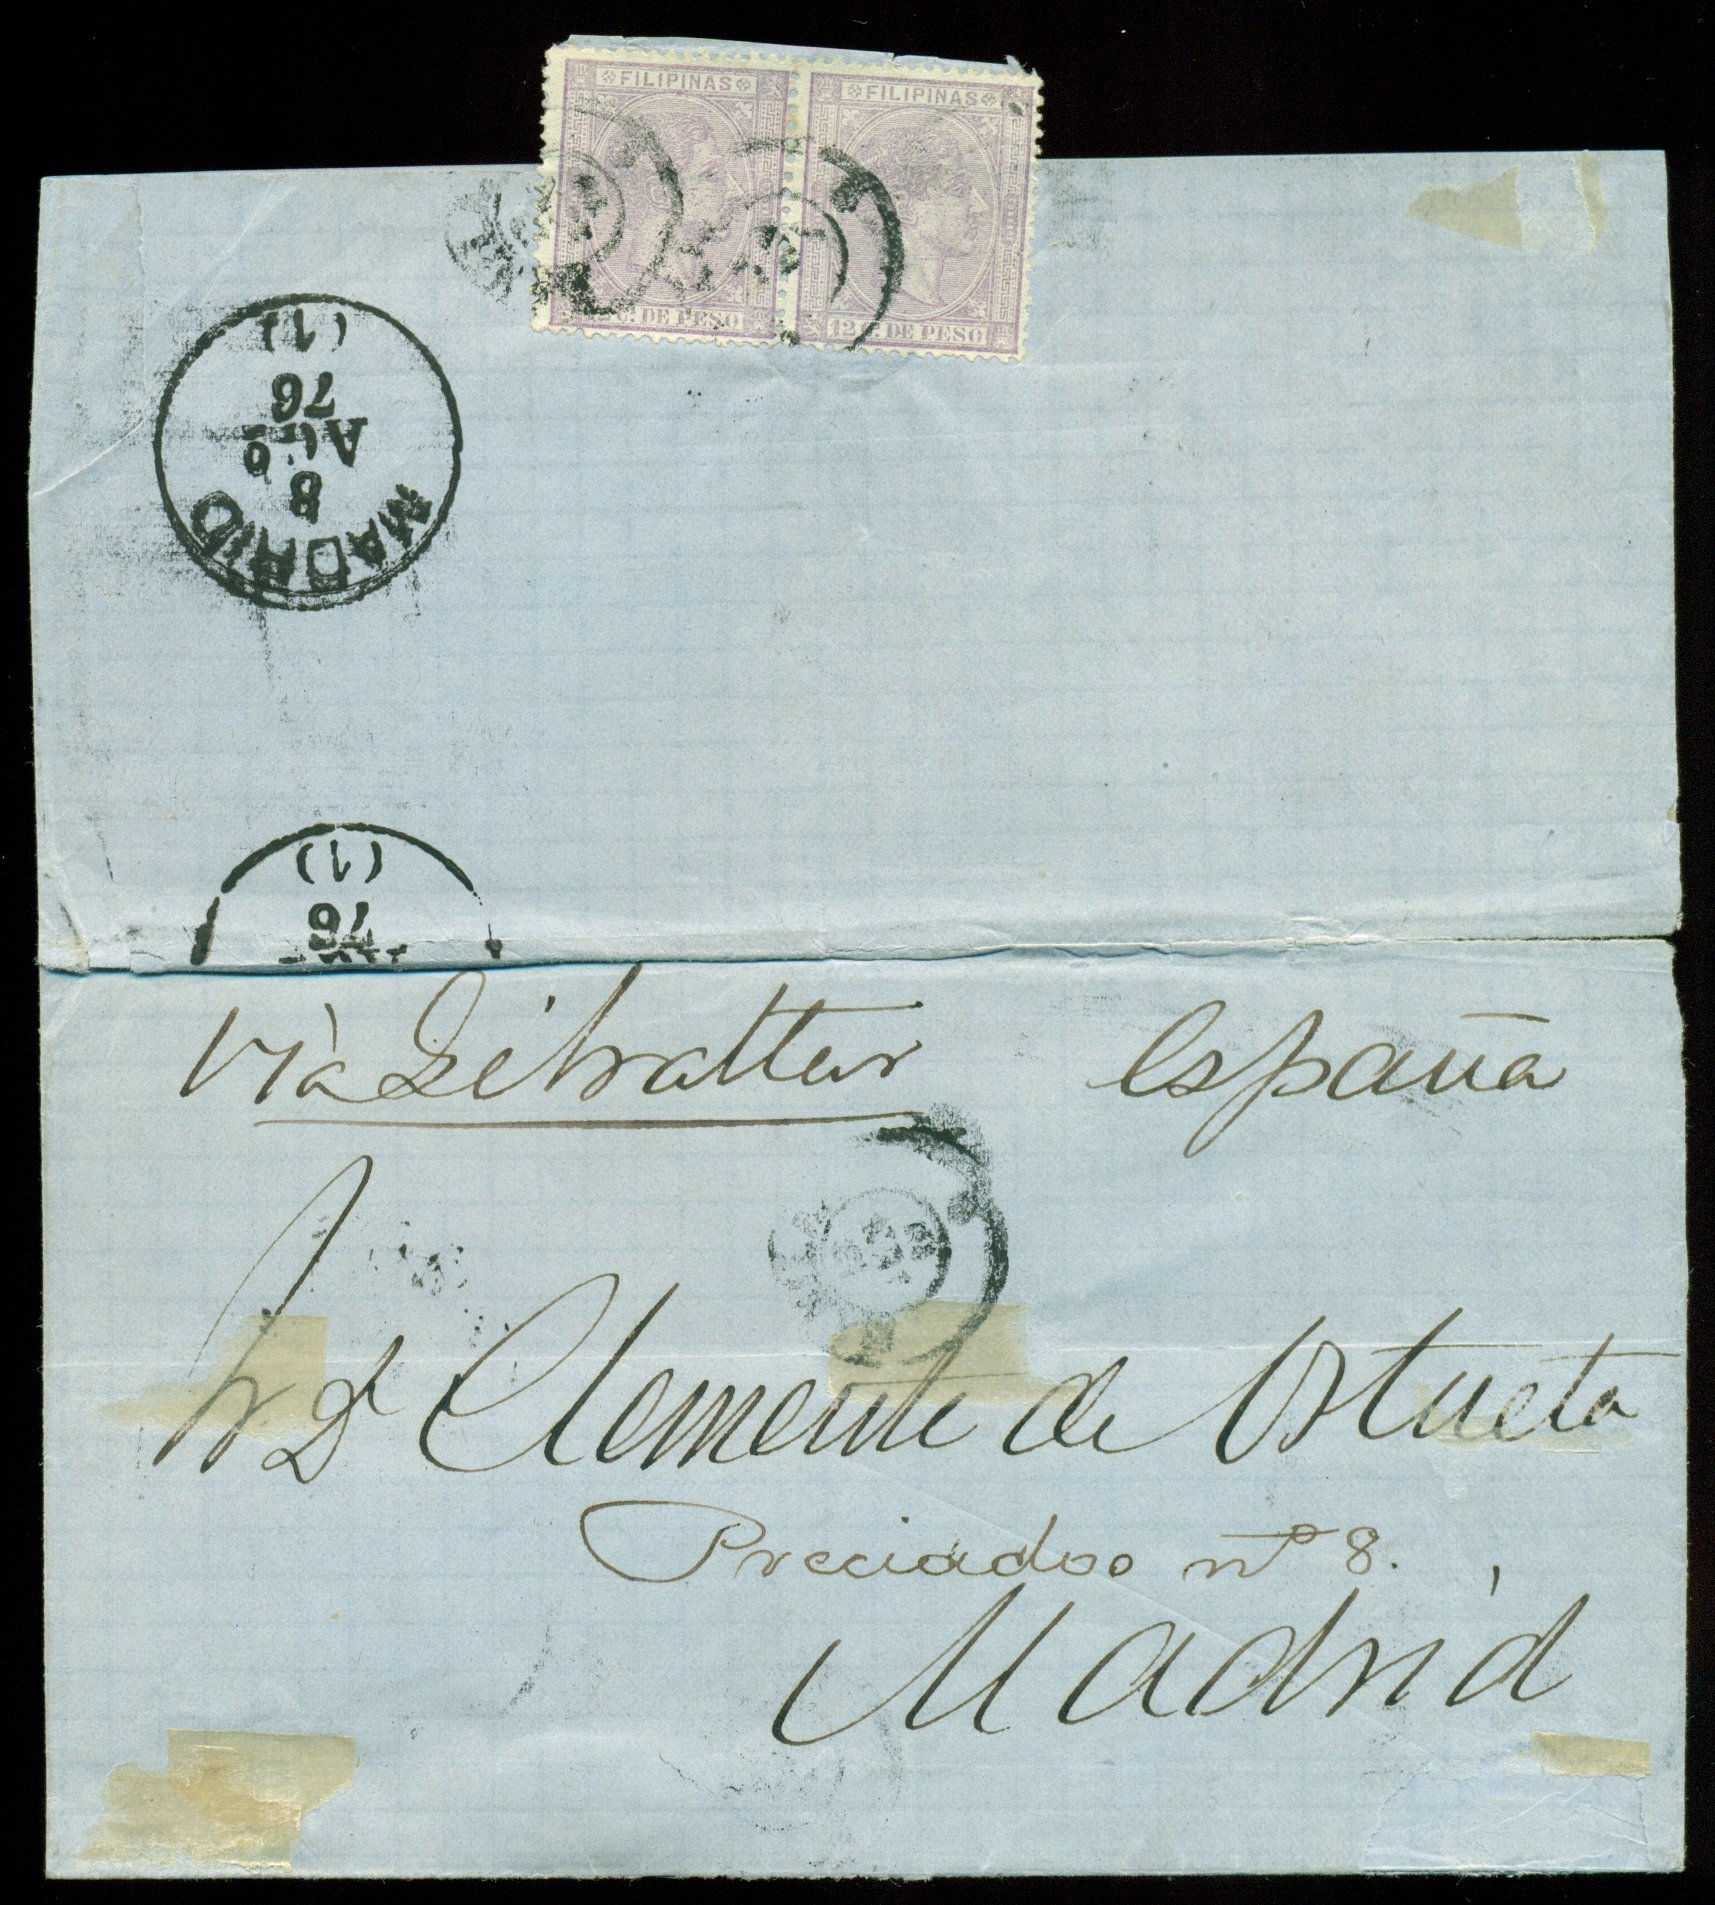 FILIPINAS FILIPINAS
C. DE PESO 12 C. DE PESO
MADRID
8
AGO
76
(1)
76
(1)
Via Gibralttar España
Sr Dn Clemente de Ostueta
Preciados nº 8.
Madrid